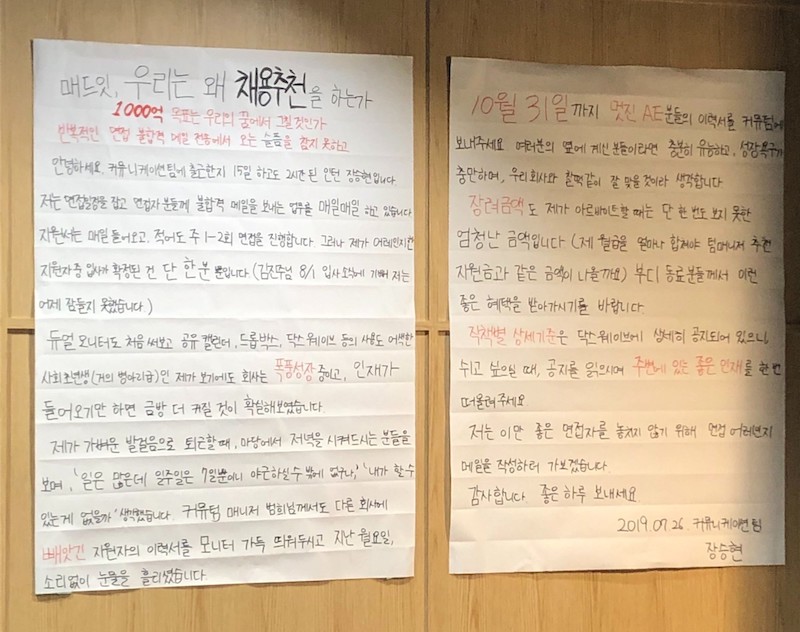 매드잇, 우리는 왜 채용추천을 하는가
1000억 목표는 우리의 꿈에서 그칠것인가
반복적인 면접 불합격 메일 전송에서 오는 슬픔을 참지 못하고
안녕하세요. 커뮤니케이션팀에 출근한지 15일 하고도 2시간 된 인턴 장승현입니다.
저는 면접일정을 잡고 면접자 분들께 불합격 메일을 보내는 업무를 매일매일 하고 있습니다
지원서는 매일 들어오고, 적어도 주 1-2회 면접을 진행합니다. 그러나 제가 어레인지한
지원자 중 입사가 확정된 건 단 한분 뿐입니다 (김진주님 8/1 입사 소식에 기뻐 저는
어제 잠들지 못했습니다.)
듀얼 모니터도 처음 써보고 공유 캘린더, 드롭박스, 닥스웨이브 등의 사용도 어색한
사회초년생(거의 병아리급)인 제가 보기에도 회사는 폭풍성장 중이고, 인재가
들어오기만 하면 금방 더 커질 것이 확실해보였습니다.
제가 가벼운 발걸음으로 퇴근할 때, 마당에서 저녁을 시켜드시는 분들을
보며, '일은 많은데 일주일은 7일뿐이니 야근하실 수 밖에 없구나,' '내가 할 수
있는게 없을까' 생각했습니다. 커뮤팀 매니저 범희님께서도 다른 회사에
빼앗긴 지원자의 이력서를 모니터 가득 띄워두시고 지난 월요일,
소리없이 눈물을 흘리셨습니다.
10월 31일까지 멋진 AE분들의 이력서를 커뮤팀에
보내주세요 여러분의 옆에 계신 분들이라면 충분히 유능하고, 성장욕구가
충만하며, 우리회사와 찰떡같이 잘 맞을 것이라 생각합니다
장려금액도 제가 아르바이트할 때는 단 한 번도 보지 못한
엄청난 금액입니다 (제 월급을 얼마나 합쳐야 팀매니저 추천
지원금과 같은 금액이 나올까요) 부디 동료분들께서 이런
좋은 혜택을 받아가시기를 바랍니다.
직책별 상세기준은 닥스웨이브에 상세히 공지되어 있으니,
쉬고 싶으실 때, 공지를 읽으시며 주변에 있는 좋은 인재를 한 번
떠올려주세요.
저는 이만 좋은 면접자를 놓치지 않기 위해 면접 어레인지
메일을 작성하러 가보겠습니다.
감사합니다. 좋은 하루 보내세요
2019.07.26 커뮤니케이션팀
장승현